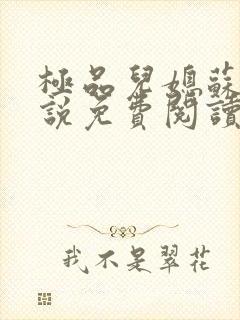 極品兒媳蘇
説免費閱讀
我不是翠花